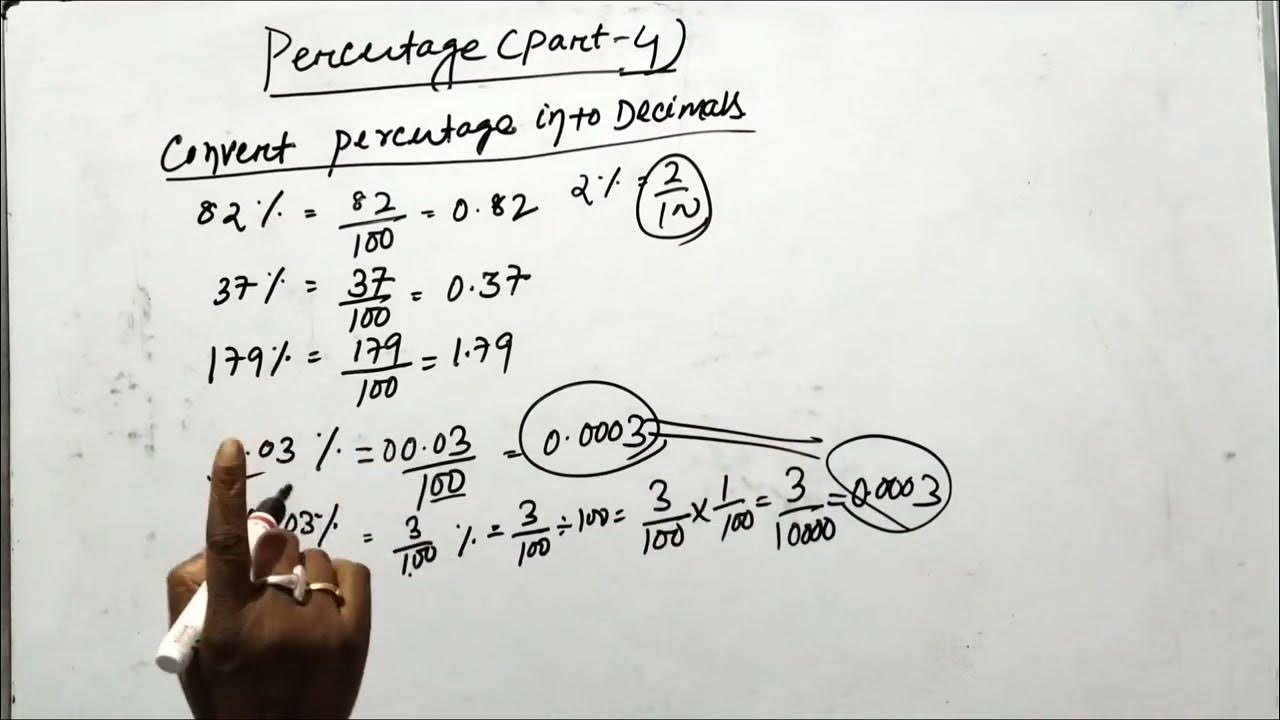 Percentage (Part-4)
Convert percentage into Decimals
82% = 82/100 = 0.82 2% = 2/100
37% = 37/100 = 0.37
179% = 179/100 = 1.79
.03 % = 00.03/100 = 0.0003
.03% = 3/100 % = 3/100 ÷ 100 = 3/100 × 1/100 = 3/10000 = 0.0003